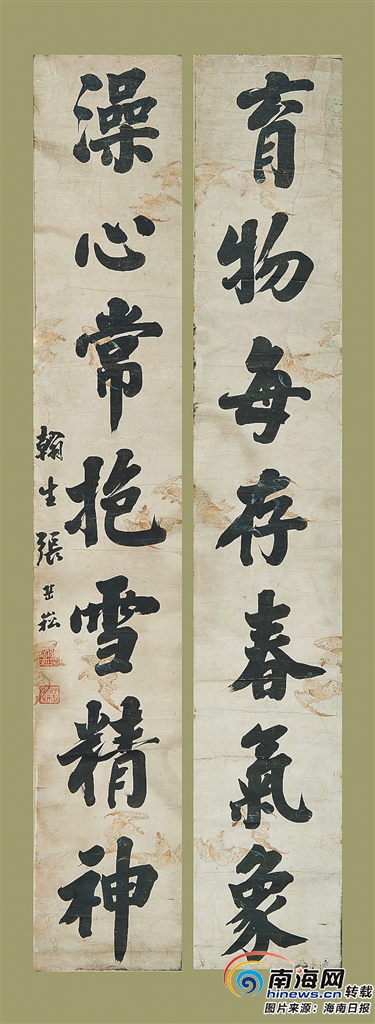 育物每存春氣象
澡心常抱雪精神
翰生張岳崧
南海网
hinews.cn 转载
图片来源：海南日报